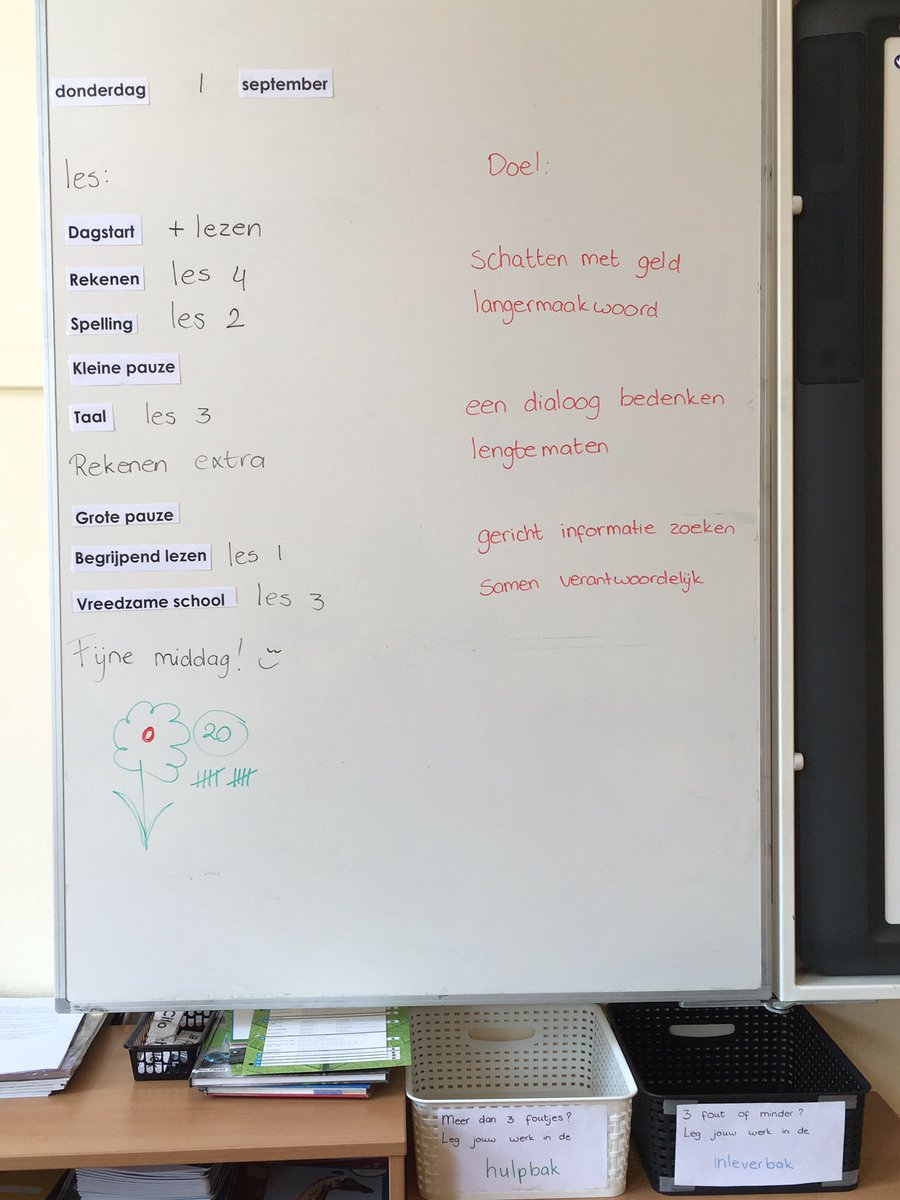 donderdag 1 september
les:
Doel:
Dagstart + lezen
Rekenen les 4
schatten met geld
Spelling les 2
langermaakwoord
Kleine pauze
Taal les 3
een dialoog bedenken
Rekenen extra
lengtematen
Grote pauze
Begrijpend lezen les 1
gericht informatie zoeken
Vreedzame school les 3
samen verantwoordelijk
Fijne middag!
20
Meer dan 3 foutjes?
Leg jouw werk in de
hulpbak
3 fout of minder?
Leg jouw werk in de
inleverbak